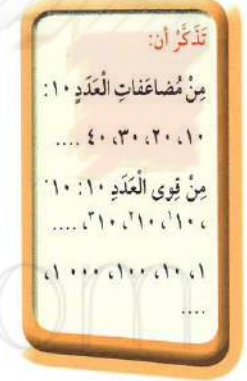 تَذَكَّرْ أن:
مِنْ مُضاعَفاتِ الْعَدَدِ ١٠:
١٠، ٢٠، ٣٠، ٤٠ ....
مِنْ قِوى الْعَدَدِ ١٠: ١٠⁠˙
، ١٠¹، ١٠²، ١٠³، ....
١، ١٠، ١٠٠، ١٠٠٠،
....